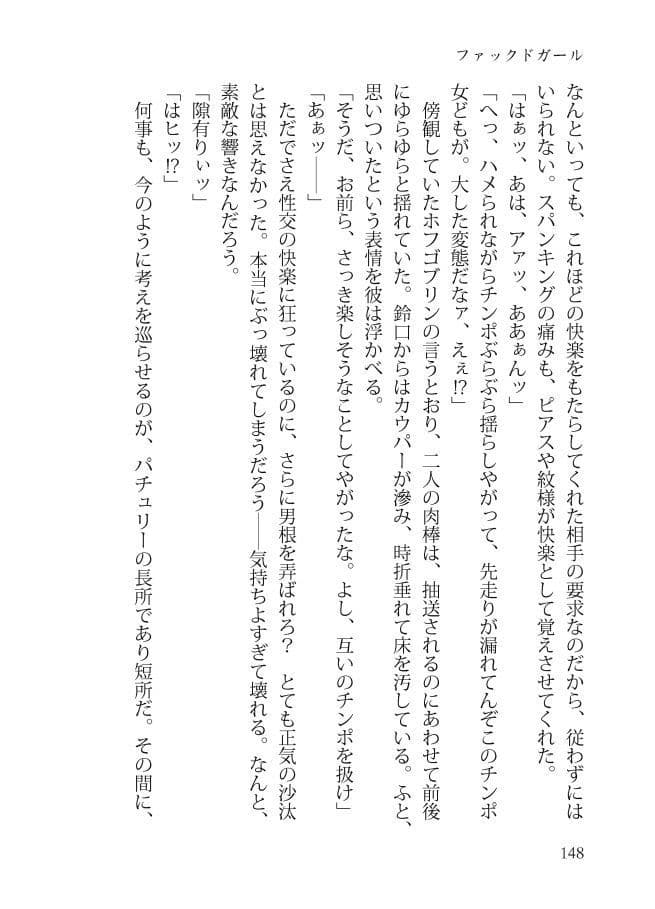 ファックドガール
なんといっても、これほどの快楽をもたらしてくれた相手の要求なのだから、従わずには
いられない。スパンキングの痛みも、ピアスや紋様が快楽として覚えさせてくれた。
「はぁッ、あは、アァッ、ああぁんッ」
「へっ、ハメられながらチンポぶらぶら揺らしやがって、先走りが漏れてんぞこのチンポ
女どもが。大した変態だなァ、えぇ!?」
　傍観していたホフゴブリンの言うとおり、二人の肉棒は、抽送されるのにあわせて前後
にゆらゆらと揺れていた。鈴口からはカウパーが滲み、時折垂れて床を汚している。ふと、
思いついたという表情を彼は浮かべる。
「そうだ、お前ら、さっき楽しそうなことしてやがったな。よし、互いのチンポを扱け」
「あぁッ――」
　ただでさえ性交の快楽に狂っているのに、さらに男根を弄ばれろ？　とても正気の沙汰
とは思えなかった。本当にぶっ壊れてしまうだろう――気持ちよすぎて壊れる。なんと、
素敵な響きなんだろう。
「隙有りぃッ」
「はヒッ!?」
　何事も、今のように考えを巡らせるのが、パチュリーの長所であり短所だ。その間に、
148